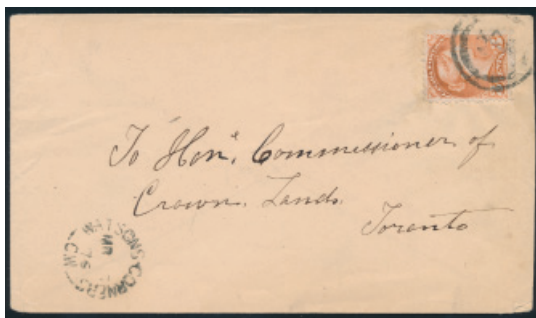 To Hon^e. Commissioner of
Crown. Lands.
Toronto
WATSONS CORNERS
C.W
MR
75